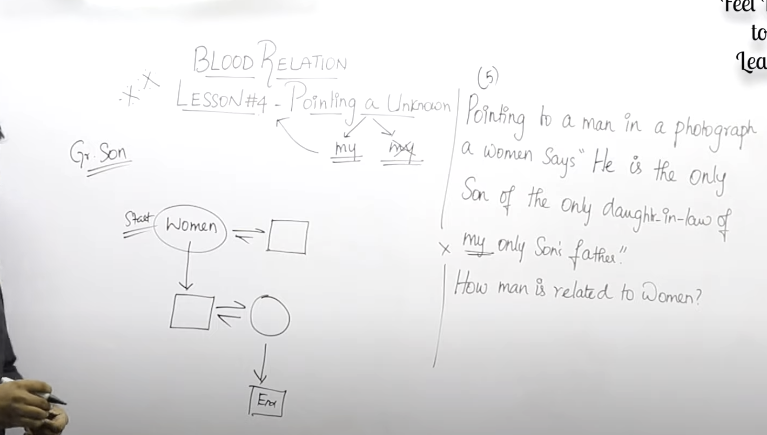 BLOOD RELATION
LESSON #4 - Pointing a Unknown
my my
Gr. Son
Start Women
End
(5)
Pointing to a man in a photograph
a women says "He is the only
Son of the only daught-in-law of
my only Son's father."
How man is related to Women?
Feel
to
Lea